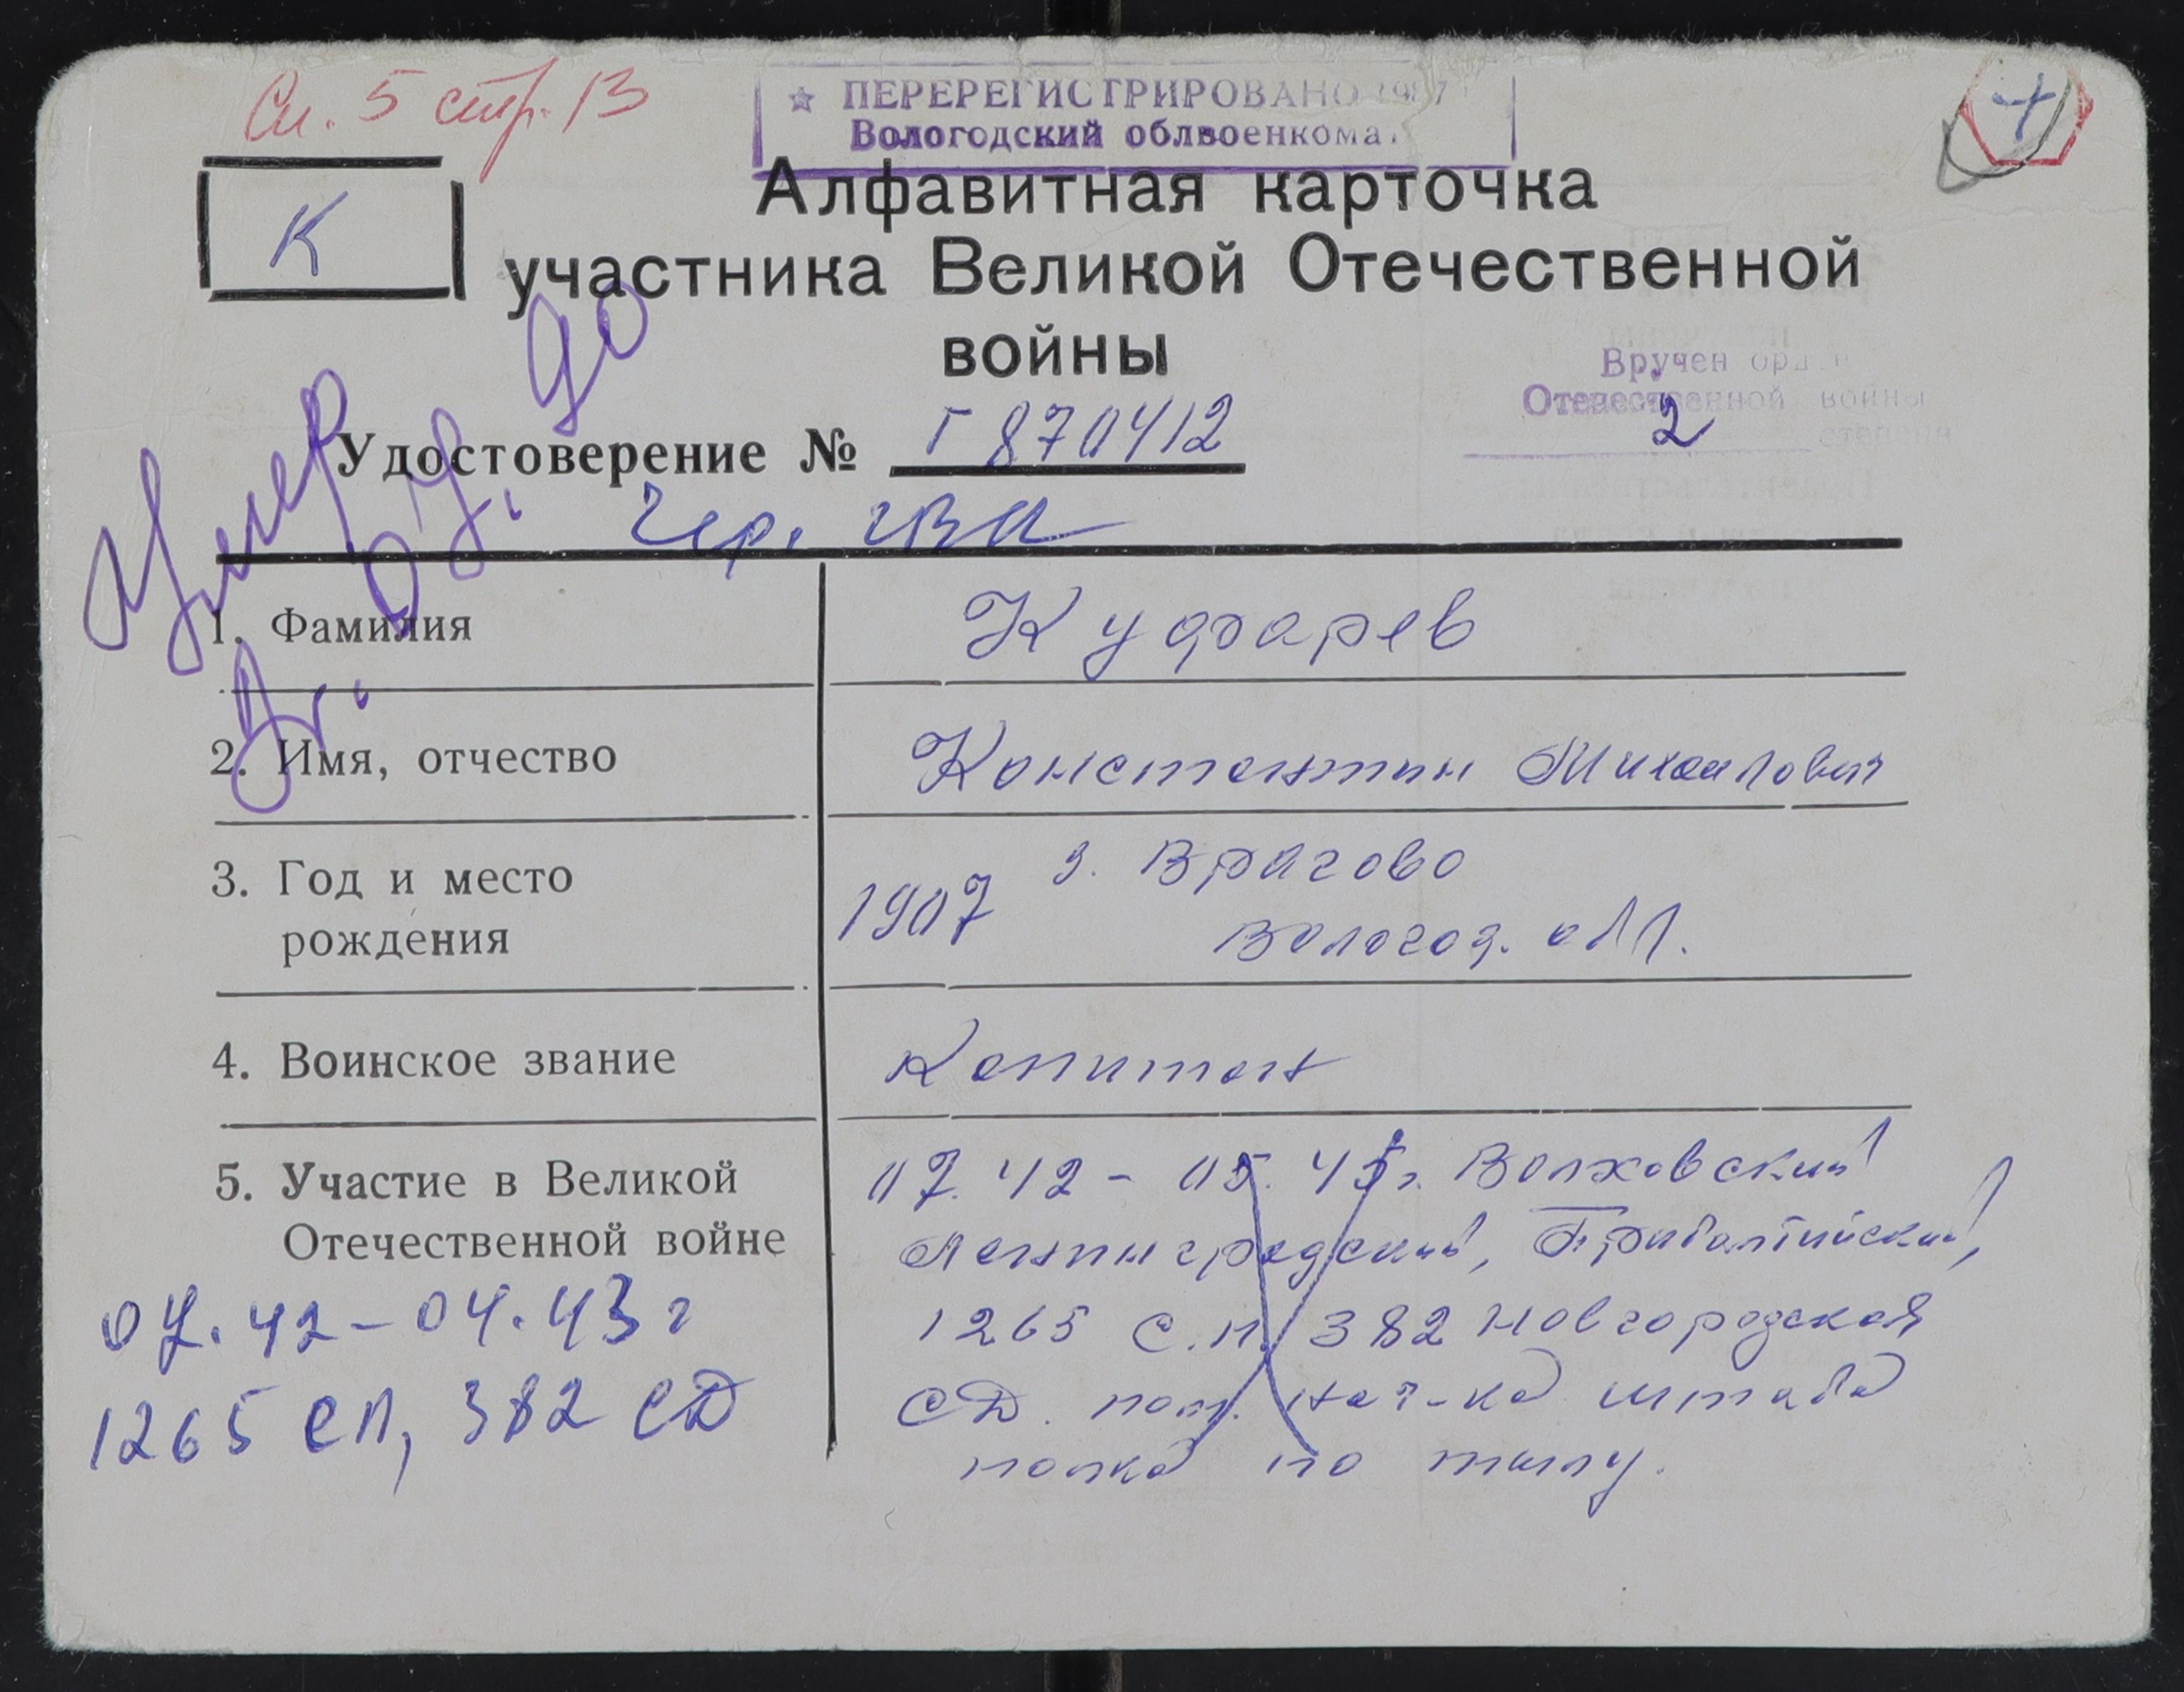 Сп. 5 стр. 13
ПЕРЕРЕГИСТРИРОВАНО 1987
Вологодский облвоенкомат
К
Алфавитная карточка
участника Великой Отечественной
войны
Вручен орден
Отечественной войны
2 степени
Удостоверение № Г 870412
гр. ИВА
Умер
07. 90
1. Фамилия Куфарев
2. Имя, отчество Константин Михайлович
3. Год и место рождения 1907 д. Врагово
Вологод. обл.
4. Воинское звание Капитан
5. Участие в Великой
Отечественной войне
07.42 - 05.45г. Волховский
Ленинградский, Прибалтийский,
1265 с.п. 382 Новгородская
СД. пом. нач-ка штаба
полка по тылу.
07.42-04.43 г
1265 СП, 382 СД